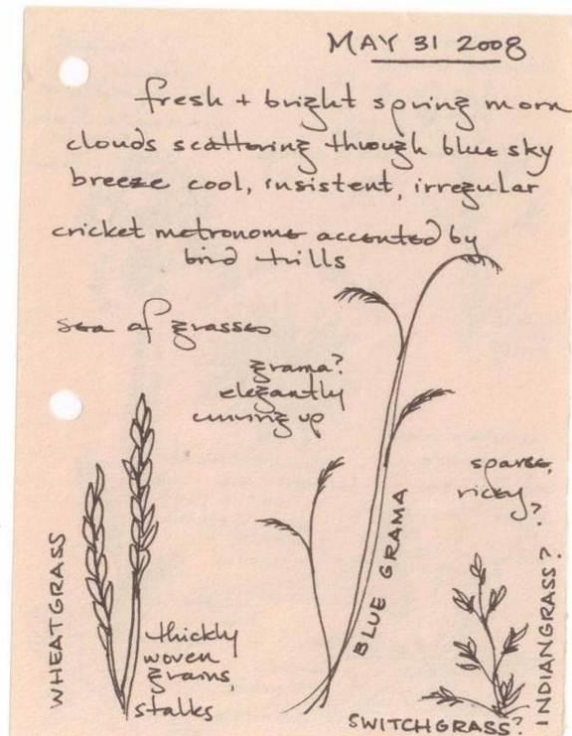 MAY 31 2008
fresh + bright spring morn
clouds scattering through blue sky
breeze cool, insistent, irregular
cricket metronome accented by
bird trills
sea of grasses
grama?
elegantly
curving up
sparse,
ricey
?
WHEATGRASS
thickly
woven
grains,
stalks
BLUE GRAMA
SWITCHGRASS?
INDIANGRASS?